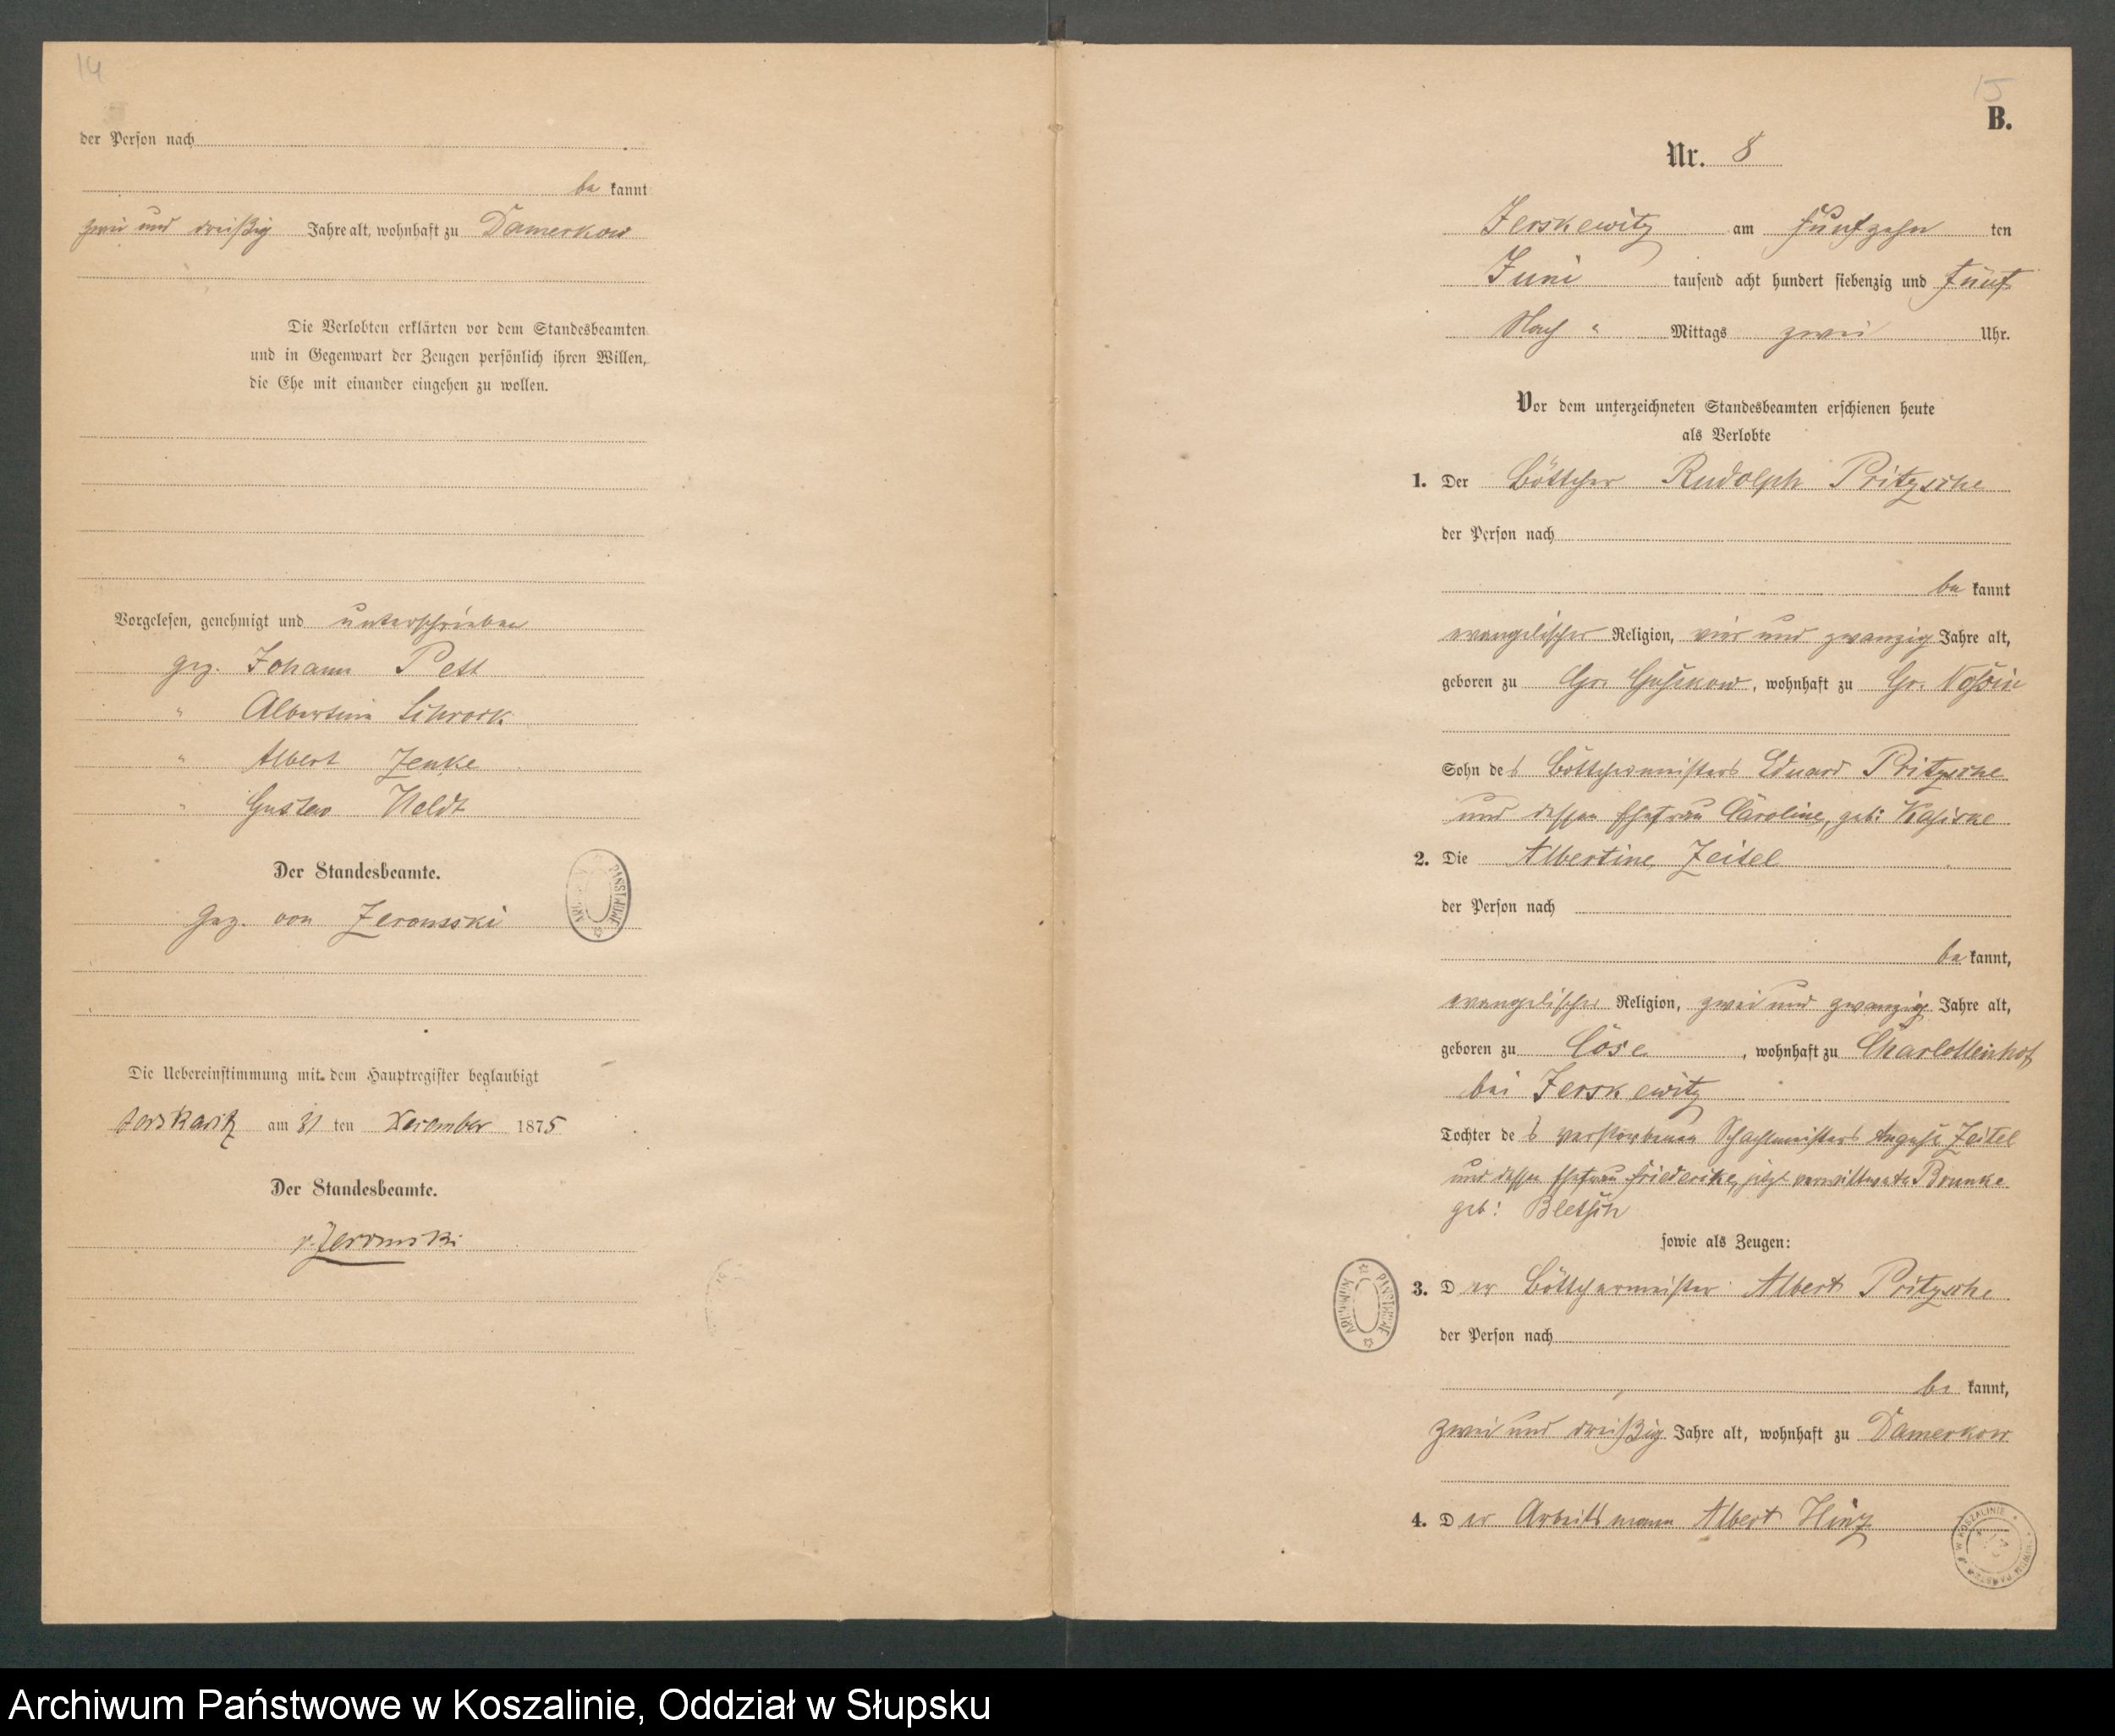 14
der Person nach
be kannt
zwei und dreißig Jahre alt, wohnhaft zu Damerkow
Die Verlobten erklärten vor dem Standesbeamten
und in Gegenwart der Zeugen persönlich ihren Willen,
die Ehe mit einander eingehen zu wollen.
Vorgelesen, genehmigt und unterschrieben
gez. Johann Pett
" Albertine Schrock
" Albert Zenke
" Gustav Noldt
Der Standesbeamte.
gez. von Zeromski
PAŃSTWOWE
Die Uebereinstimmung mit dem Hauptregister beglaubigt
am 31 ten December 1875
Der Standesbeamte.
v. Zeromski
15
B.
Nr. 8
Jerskewitz am fünfzehn ten
Juni tausend acht hundert siebenzig und fünf
Nach " Mittags zwei Uhr.
Vor dem unterzeichneten Standesbeamten erschienen heute
als Verlobte
1. Der Böttcher Rudolph Pritzsche
der Person nach
be kannt
evangelischer Religion, vier und zwanzig Jahre alt,
geboren zu Gr. Gustkow, wohnhaft zu Gr. Nossin
Sohn des Böttchermeisters Eduard Pritzsche
und dessen Ehefrau Caroline, geb:
2. Die Albertine Zeitel
der Person nach
be kannt,
evangelischer Religion, zwei und zwanzig Jahre alt,
geboren zu Cose, wohnhaft zu Charlottenhof
bei Jerskewitz
Tochter des verstorbenen Schachtmeisters August Zeitel
und dessen Ehefrau Friederike, jetzt verwittwete Brunke
geb:
sowie als Zeugen:
3. Der Böttchermeister Albert Pritzsche
der Person nach
be kannt,
zwei und dreißig Jahre alt, wohnhaft zu Damerkow
4. Der Arbeitsmann Albert Hinz
W KOSZALINIE
Archiwum Państwowe w Koszalinie, Oddział w Słupsku